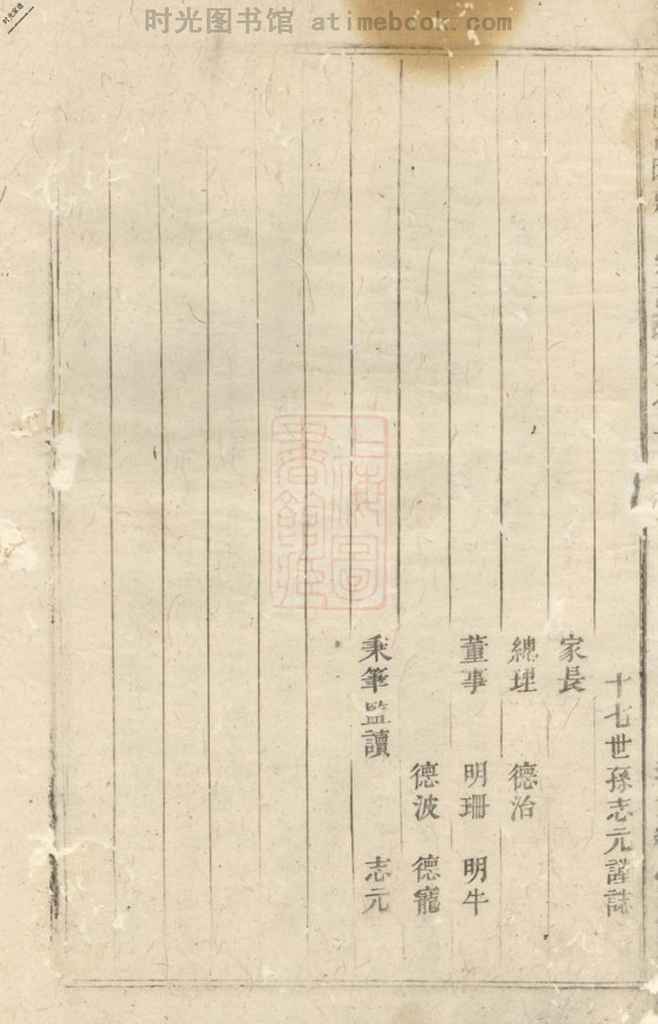 时光图书馆 atimebook.com
十七世孫志元謹誌
家長
總理 德治
董事 明珊 明牛
德波 德寵
秉筆監讀 志元